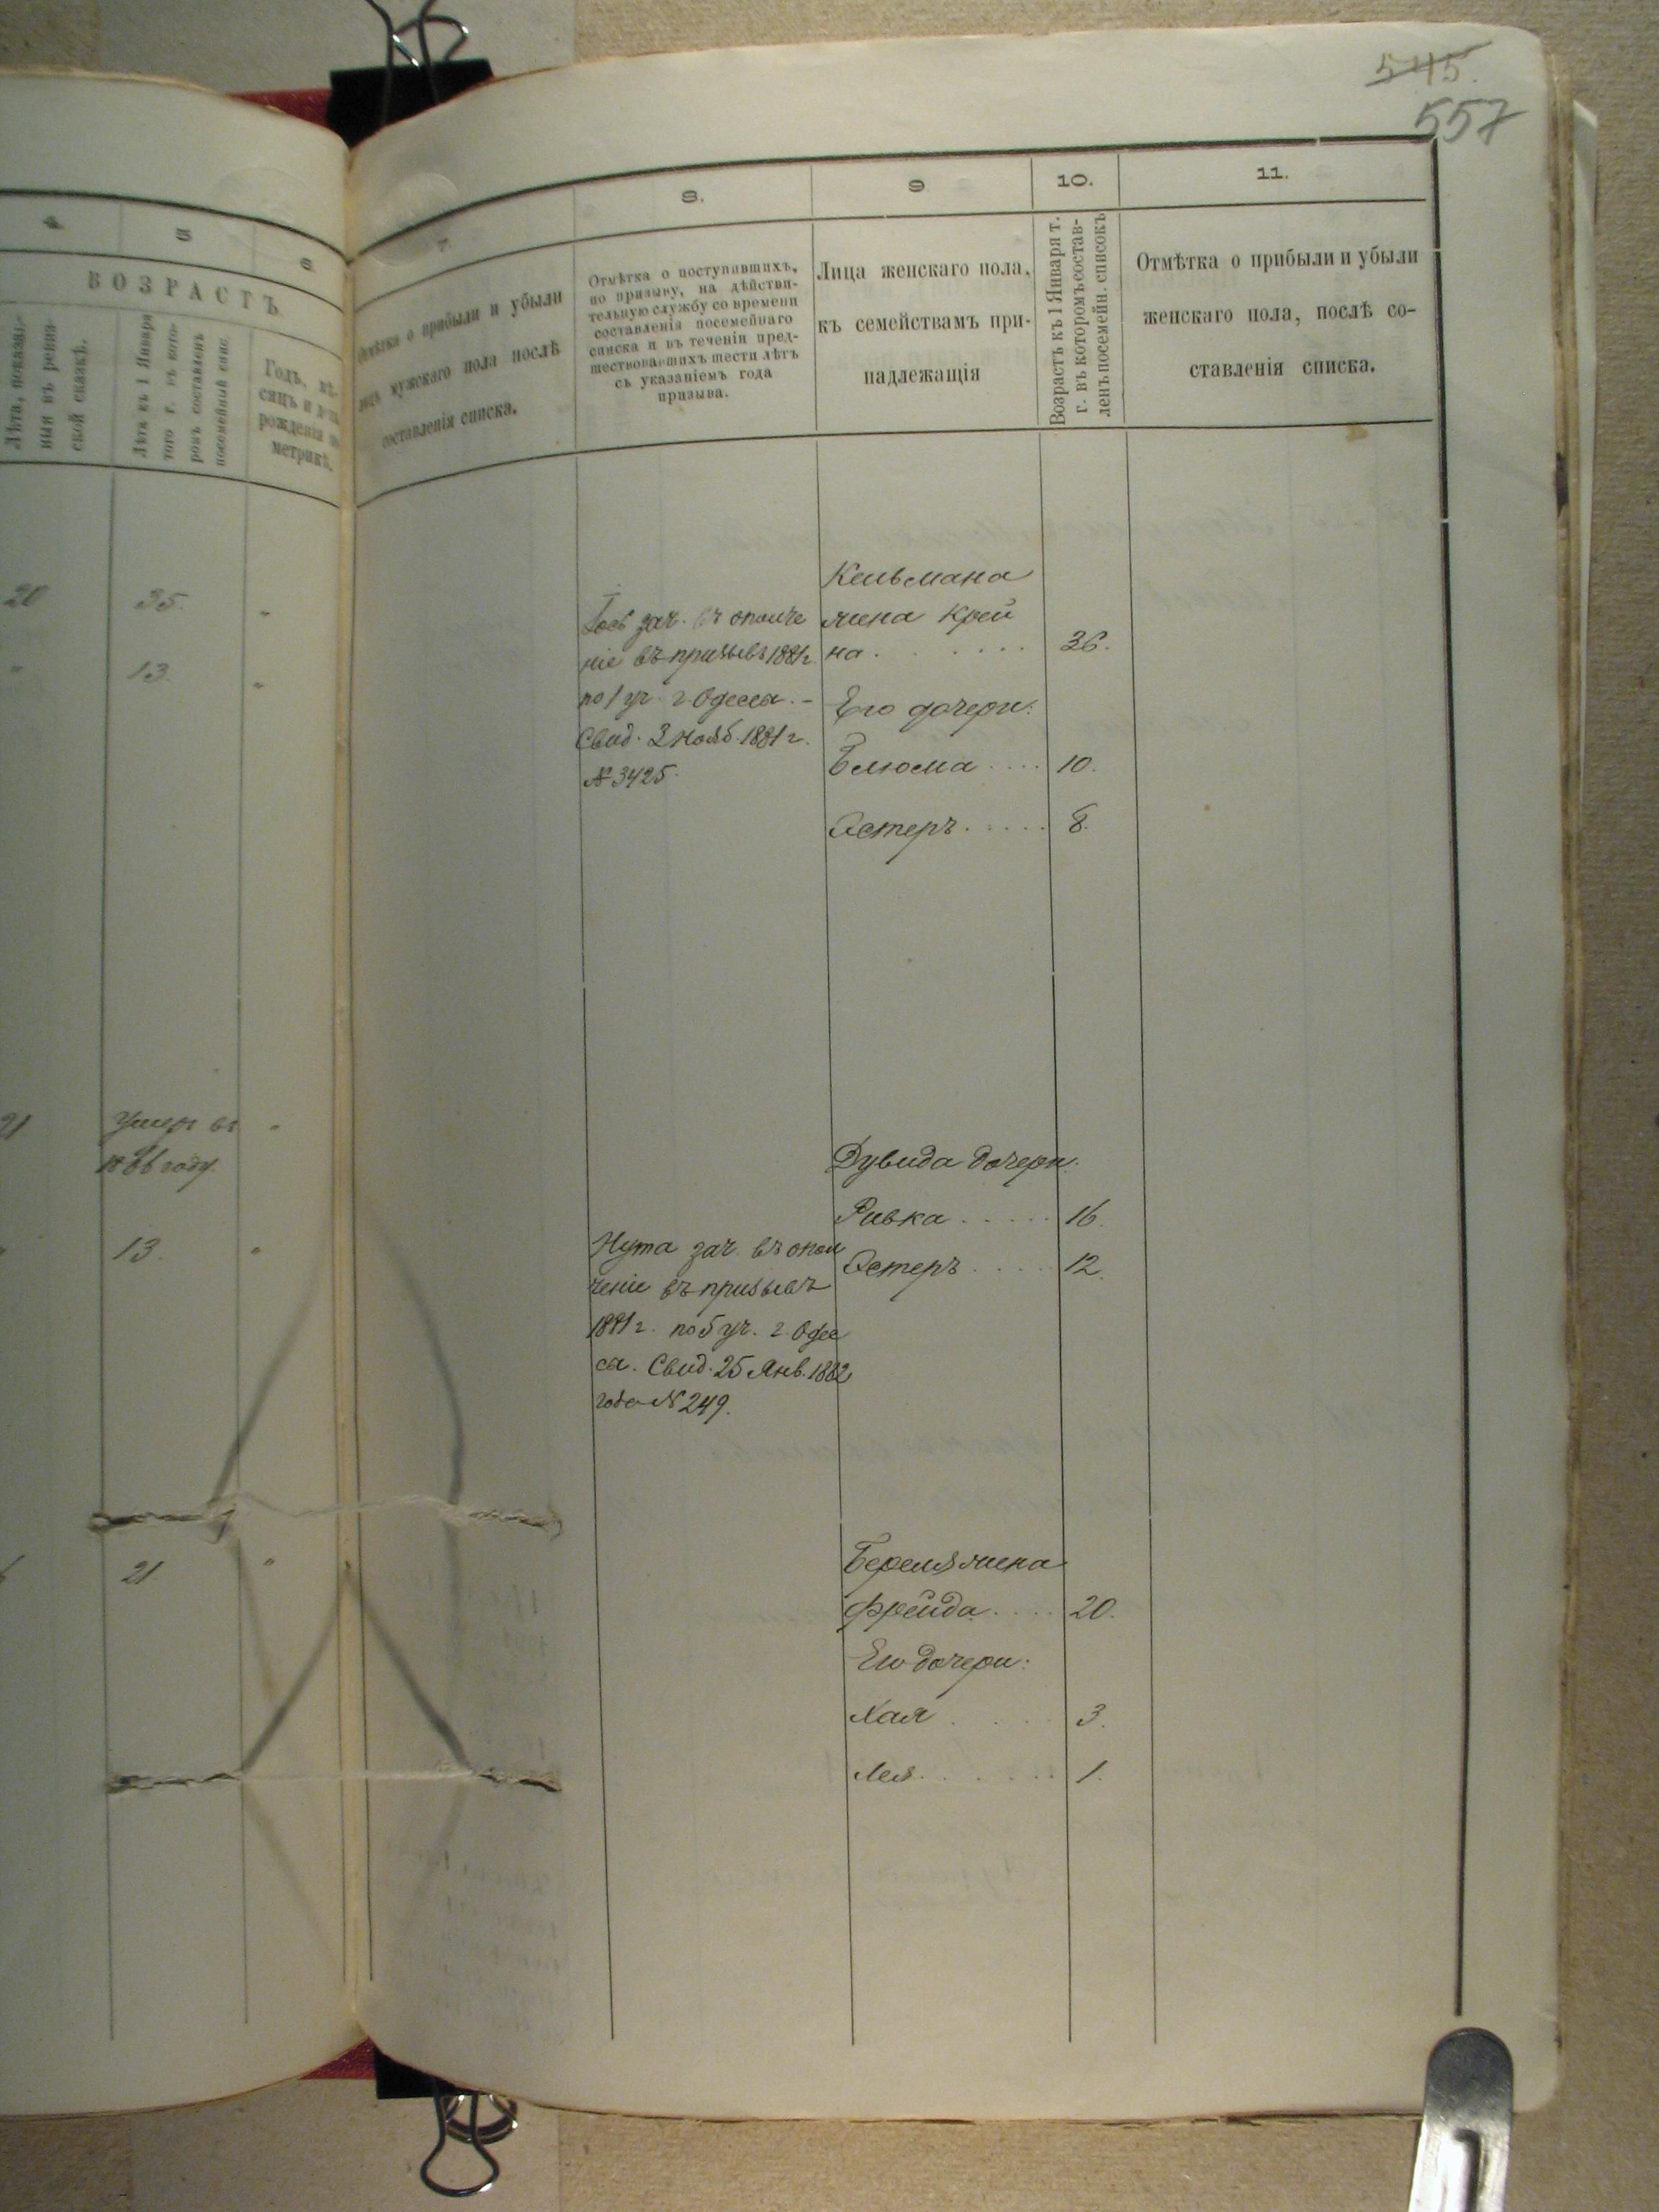 545.
557
4. 5 6
ВОЗРАСТЪ.
Лѣта, показан-
ныя въ ревиз-
ской сказкѣ.
Лѣта къ 1 Января
того г. въ кото-
ромъ составленъ
посемейный спис.
Годъ, мѣ-
сяцъ и день
рожденія по
метрикѣ.
20 35. "
" 13. "
21 Умеръ въ "
1866 году.
" 13. "
21 "
7 8. 9 10. 11.
Отмѣтка о прибыли и убыли
лицъ мужскаго пола послѣ
составленія списка.
Отмѣтка о поступившихъ,
по призыву, на дѣйстви-
тельную службу со времени
составленія посемейнаго
списка и въ теченіи пред-
шествовавшихъ шести лѣтъ
съ указаніемъ года
призыва.
Лица женскаго пола,
къ семействамъ при-
надлежащія
Возрастъ къ 1 Января т.
г. въ которомъ состав-
ленъ посемейн. списокъ
Отмѣтка о прибыли и убыли
женскаго пола, послѣ со-
ставленія списка.
зач. въ ополче
ніе въ призывѣ 1881 г.
по 1 уч. г. Одесса. -
Свид. 3 Нояб. 1881 г.
№ 3425.
Кельмана
жена Крей
на . . . . . . 36.
Его дочери:
Блюма .... 10.
Эстеръ ..... 8.
Дувида дочери:
Ривка ..... 16.
Эстеръ ..... 12.
Нута зач. въ опол
ченіе въ призывѣ
1881 г. по 5 уч. г. Одес
са. Свид. 25 Янв. 1882
года № 249.
Береля жена
Фрейда .... 20.
Его дочери:
Хая . . . . 3.
Лея . . . . . 1.